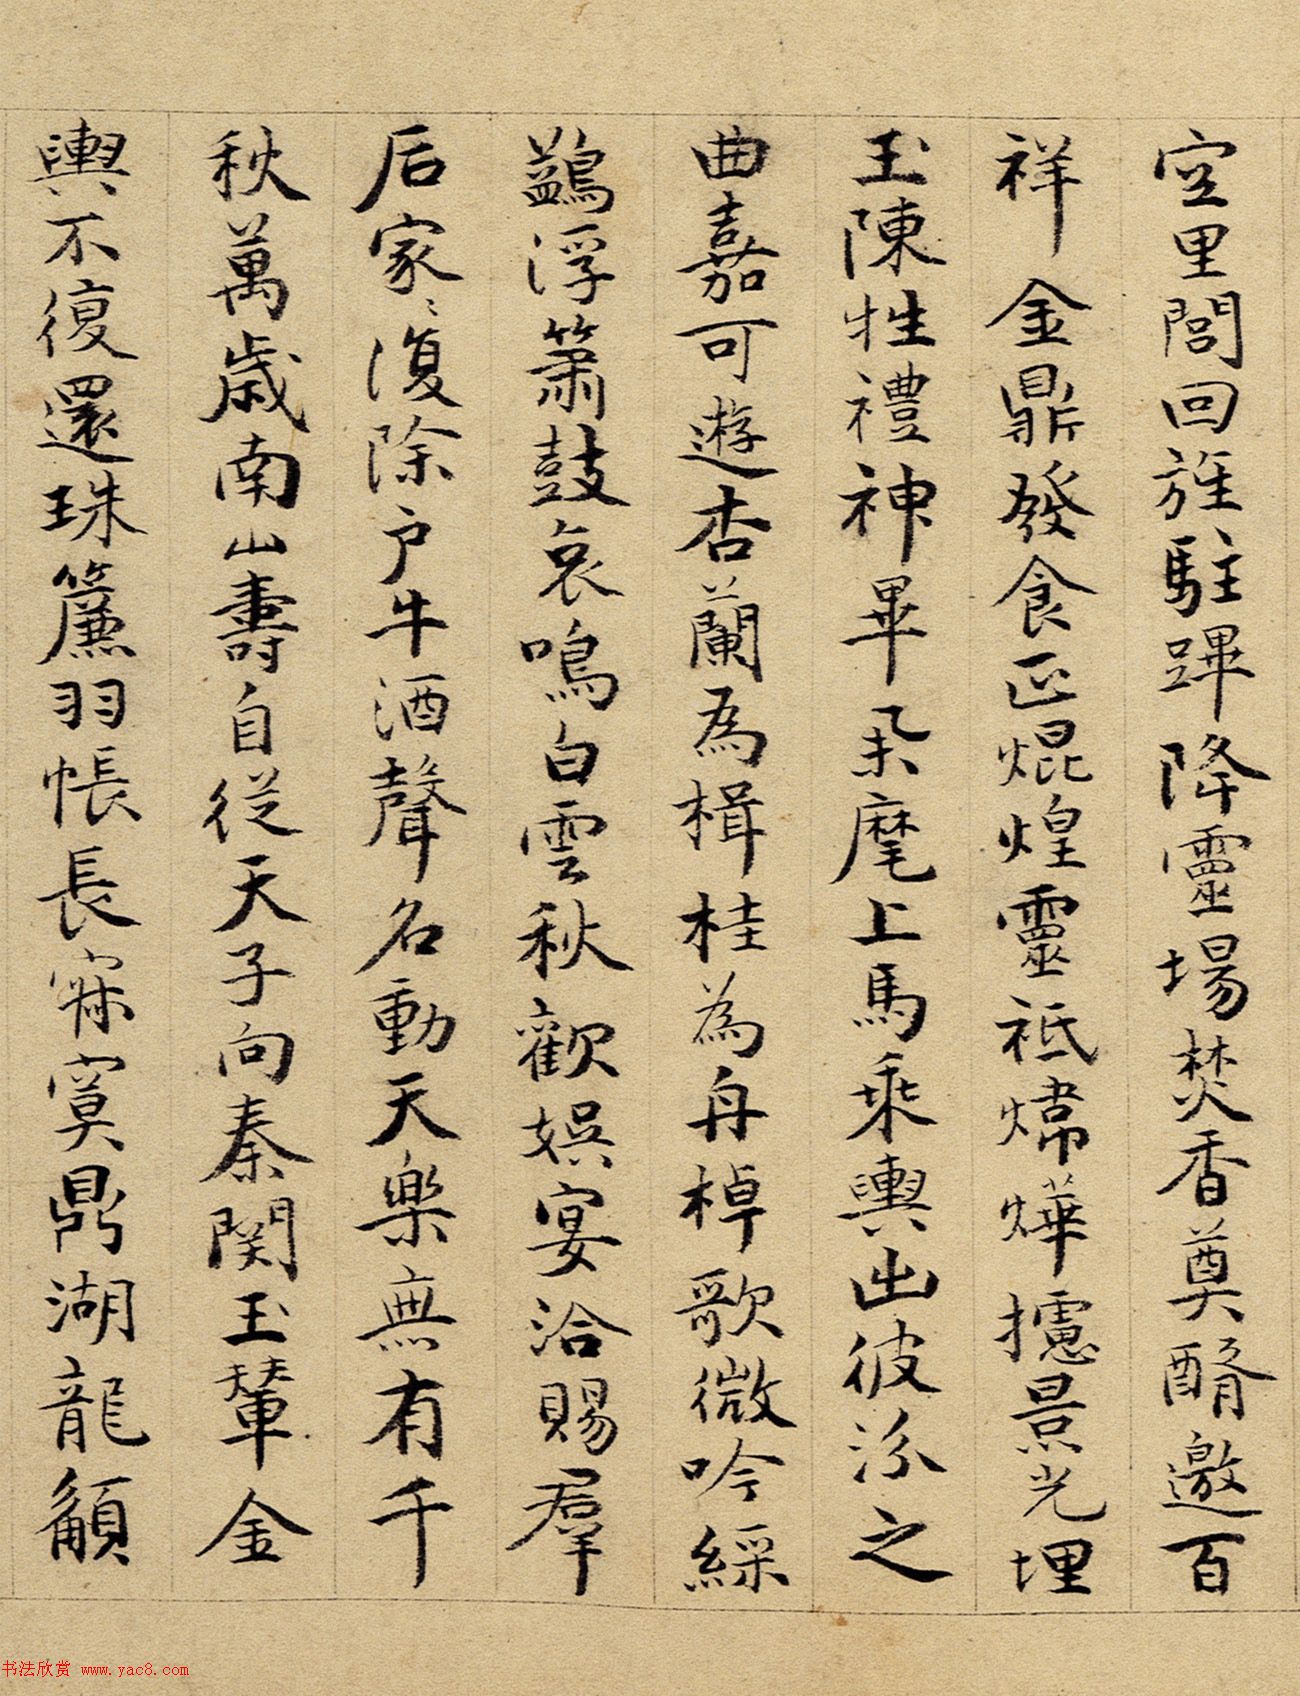 空里閭回旌駐蹕降靈場焚香奠醑邀百
祥金鼎發食正焜煌靈祇煒燁攄景光埋
玉陳牲禮神畢麾上馬乘輿出彼汾之
曲嘉可遊杏蘭為楫桂為舟棹歌微吟綵
鷁浮簫鼓哀鳴白雲秋歡娛宴洽賜羣
后家〻復除户牛酒聲名動天樂無有千
秋萬歲南山壽自從天子向秦関玉輦金
輿不復還珠簾羽帳長寂寞鼎湖龍
书法欣赏 www.yac8.com